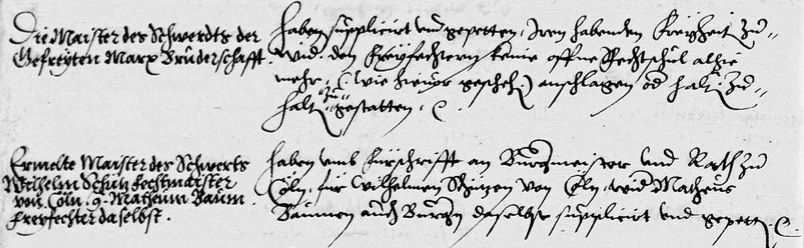 Die Maister des Schwerdts der
Gefreyten Marx Brüderschafft.
haben supplicirt vnd gepetten, Iren habenden Freyheit zu=
wid. den Freyfechtern keine offne Fechtschul alhie
mehr, (wie hieuor gescheh.) anschlagen od halt. zu=
halt. zu gestatten. /.
Ermelte Maister des Schwerts
Wilhelm Schütz fechtmaister
von Cöln. g. Matheum Baum
freyfechter daselbst.
haben vmb fürschrifft an Burgmeister vnd Rath zu
Cöln, für Wilhelmen Schützen von Cöln, wid Matheus
Baumen auch Burgern daselbst supplicirt vnd gepett. /.